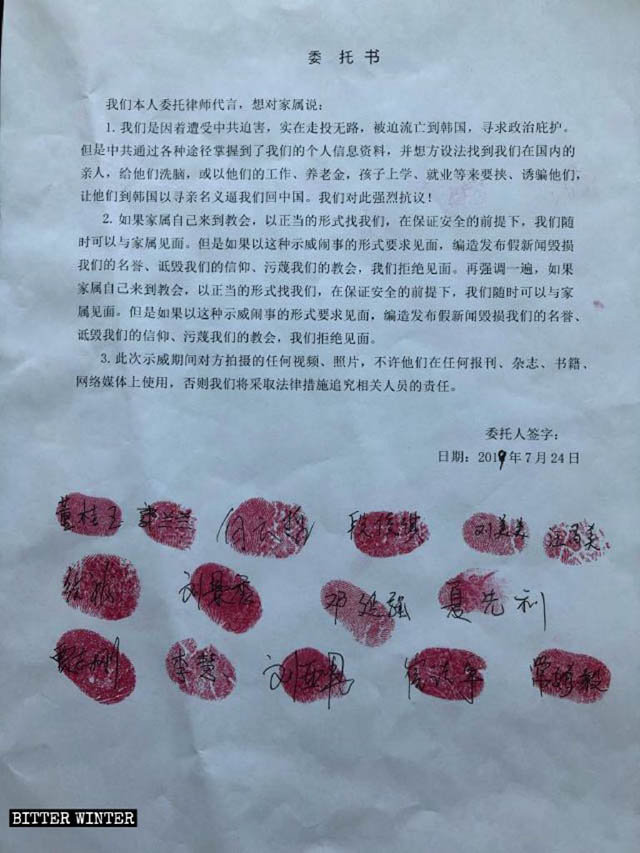 委 托 书
我们本人委托律师代言，想对家属说：
1. 我们是因着遭受中共迫害，实在走投无路，被迫流亡到韩国，寻求政治庇护。
但是中共通过各种途径掌握到了我们的个人信息资料，并想方设法找到我们在国内的
亲人，给他们洗脑，或以他们的工作、养老金，孩子上学、就业等来要挟、诱骗他们，
让他们到韩国以寻亲名义逼我们回中国。我们对此强烈抗议！
2. 如果家属自己来到教会，以正当的形式找我们，在保证安全的前提下，我们随
时可以与家属见面。但是如果以这种示威闹事的形式要求见面，编造发布假新闻毁损
我们的名誉、诋毁我们的信仰、污蔑我们的教会，我们拒绝见面。再强调一遍，如果
家属自己来到教会，以正当的形式找我们，在保证安全的前提下，我们随时可以与家
属见面。但是如果以这种示威闹事的形式要求见面，编造发布假新闻毁损我们的名誉、
诋毁我们的信仰、污蔑我们的教会，我们拒绝见面。
3. 此次示威期间对方拍摄的任何视频、照片，不许他们在任何报刊、杂志、书籍、
网络媒体上使用，否则我们将采取法律措施追究相关人员的责任。
委托人签字：
日期：2019 年 7 月 24 日
董桂玉 刘美
邓延强 夏先利
李楚 刘亚
BITTER WINTER